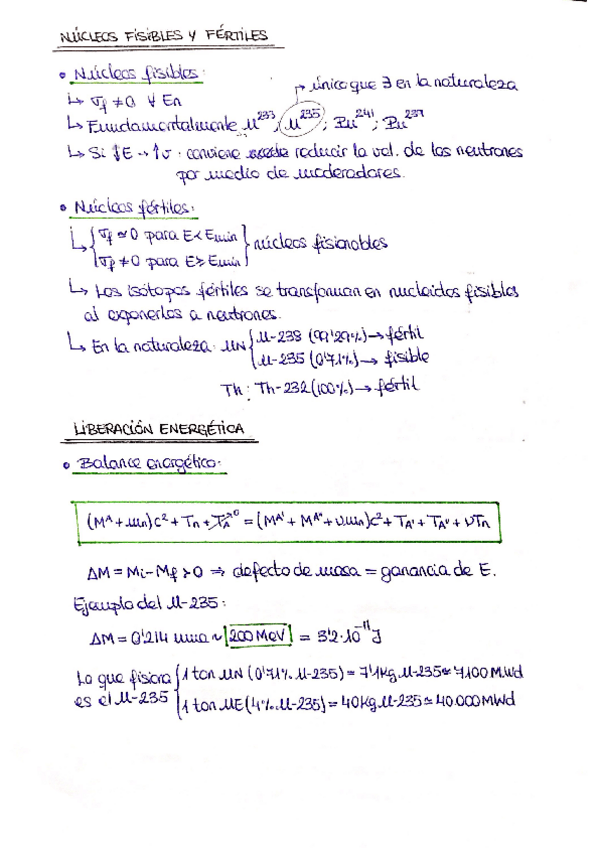 NÚCLEOS FISIBLES Y FÉRTILES
• Núcleos fisibles:
→ único que ∃ en la naturaleza
↳ σf ≠ 0 ∀ En
↳ Fundamentalmente U²³³; U²³⁵; Pu²⁴¹; Pu²³⁹
↳ Si ↓E → ↑σ · conviene reducir la vel. de los neutrones
por medio de moderadores.
• Núcleos fértiles:
↳ { σf ≃ 0 para E<Emin } núcleos fisionables
σf ≠ 0 para E≥Emin
↳ Los isótopos fértiles se transforman en nucleidos fisibles
al exponerlos a neutrones.
↳ En la naturaleza: UN { U-238 (99'29%) → fértil
U-235 (0'71%) → fisible
Th: Th-232 (100%) → fértil
LIBERACIÓN ENERGÉTICA
• Balance energético:
(Mᴬ + mn)c² + Tn + T_A→⁰ = (Mᴬ' + Mᴬ'' + νmn)c² + T_A' + T_A'' + νTn
ΔM = Mi - Mf > 0 ⇒ defecto de masa = ganancia de E.
Ejemplo del U-235:
ΔM = 0'214 uma ~ 200 MeV = 3'2·10⁻¹¹ J
Lo que fisiona { 1 ton UN (0'71% U-235) = 7'1 Kg U-235 ≃ 7100 MWd
es el U-235 1 ton UE (4% U-235) = 40 Kg U-235 ≃ 40.000 MWd